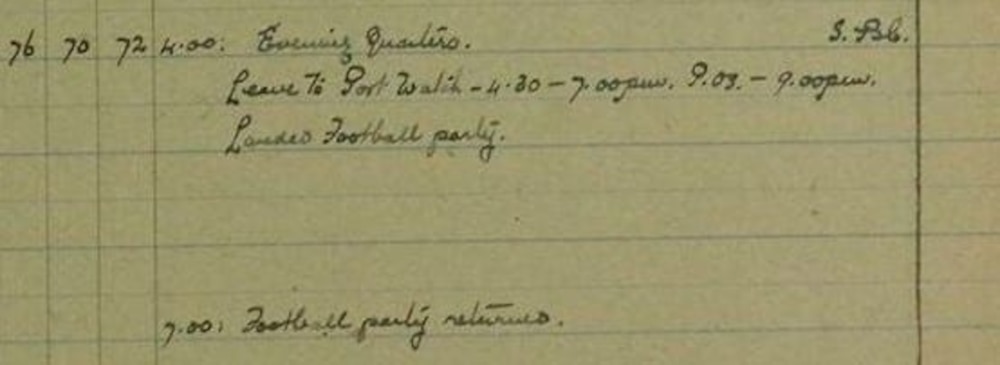 76 70 72 4.00: Evening Quarters. S. Bb.
Leave to Port Watch - 4.30 - 7.00pm. P.O3. - 9.00pm.
Landed Football party.
7.00: Football party returned.